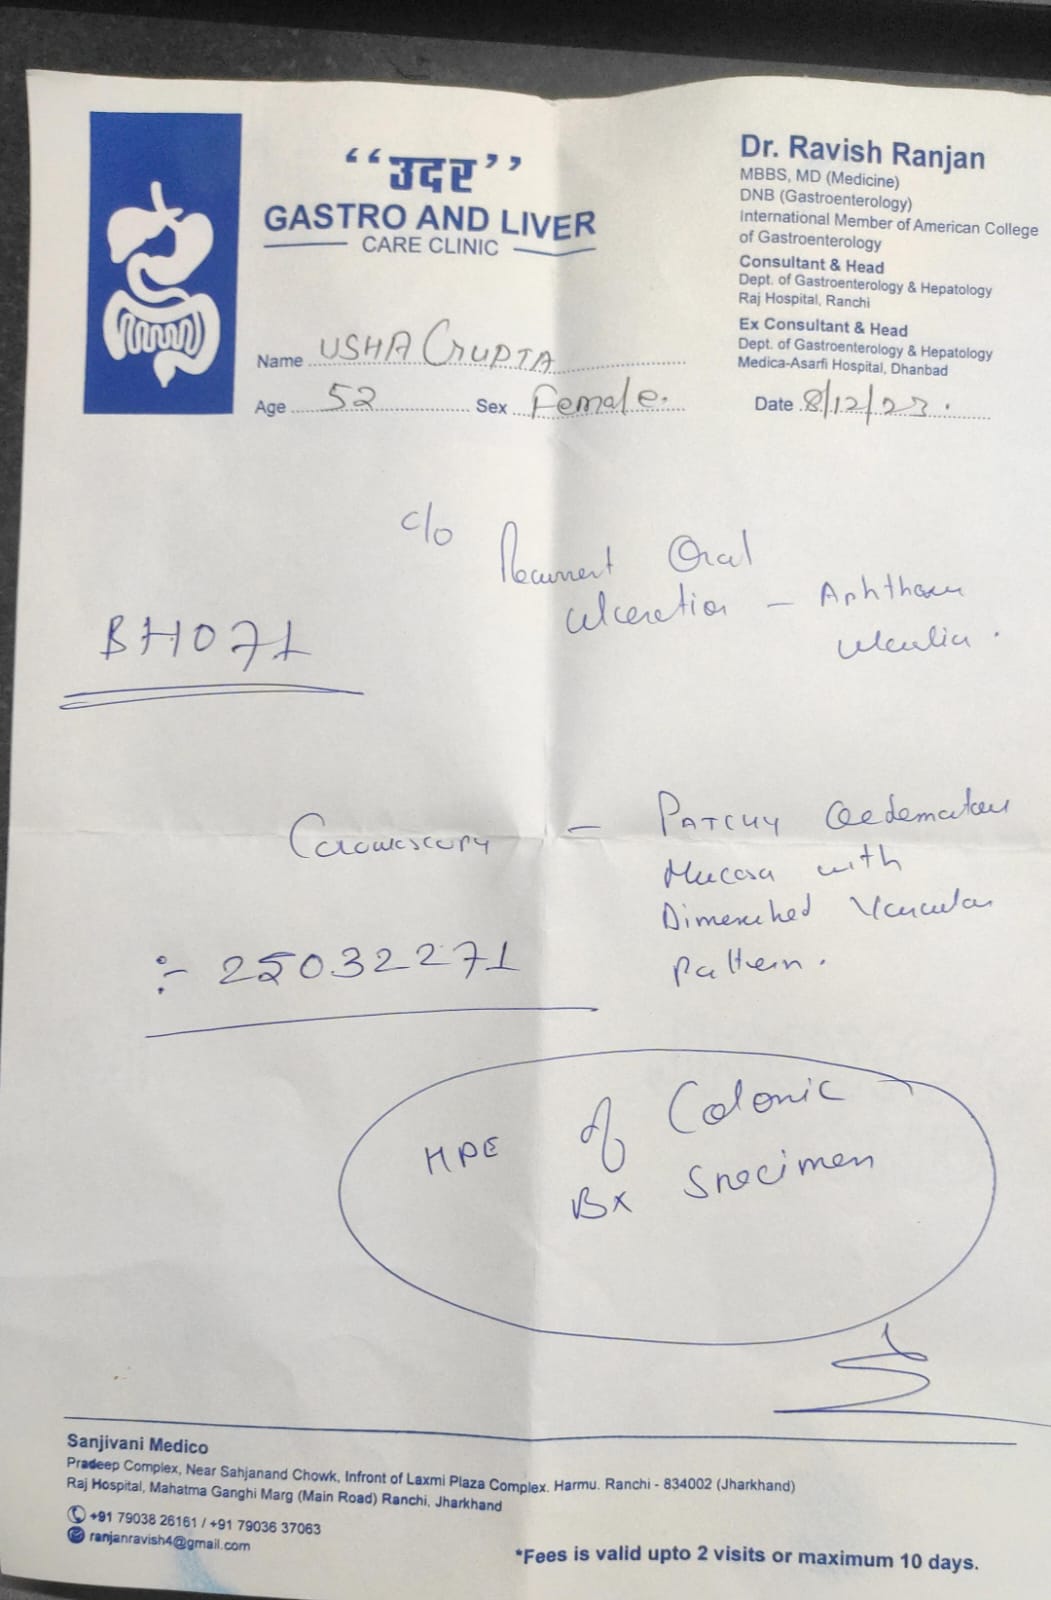 ‘‘उदर’’
GASTRO AND LIVER
CARE CLINIC
Dr. Ravish Ranjan
MBBS, MD (Medicine)
DNB (Gastroenterology)
International Member of American College
of Gastroenterology
Consultant & Head
Dept. of Gastroenterology & Hepatology
Raj Hospital, Ranchi
Ex Consultant & Head
Dept. of Gastroenterology & Hepatology
Medica-Asarfi Hospital, Dhanbad
Name USHA GUPTA
Age 52 Sex Female. Date 8/12/23.
c/o Recurrent Oral
ulceration - Aphthous
BH071
Colonoscopy - PATCHY Oedematous
Mucosa with
Diminished Vascular
Pattern.
:- 25032271
HPE of Colonic
Bx Specimen
Sanjivani Medico
Pradeep Complex, Near Sahjanand Chowk, Infront of Laxmi Plaza Complex. Harmu. Ranchi - 834002 (Jharkhand)
Raj Hospital, Mahatma Ganghi Marg (Main Road) Ranchi, Jharkhand
+91 79038 26161 / +91 79036 37063
ranjanravish4@gmail.com
*Fees is valid upto 2 visits or maximum 10 days.